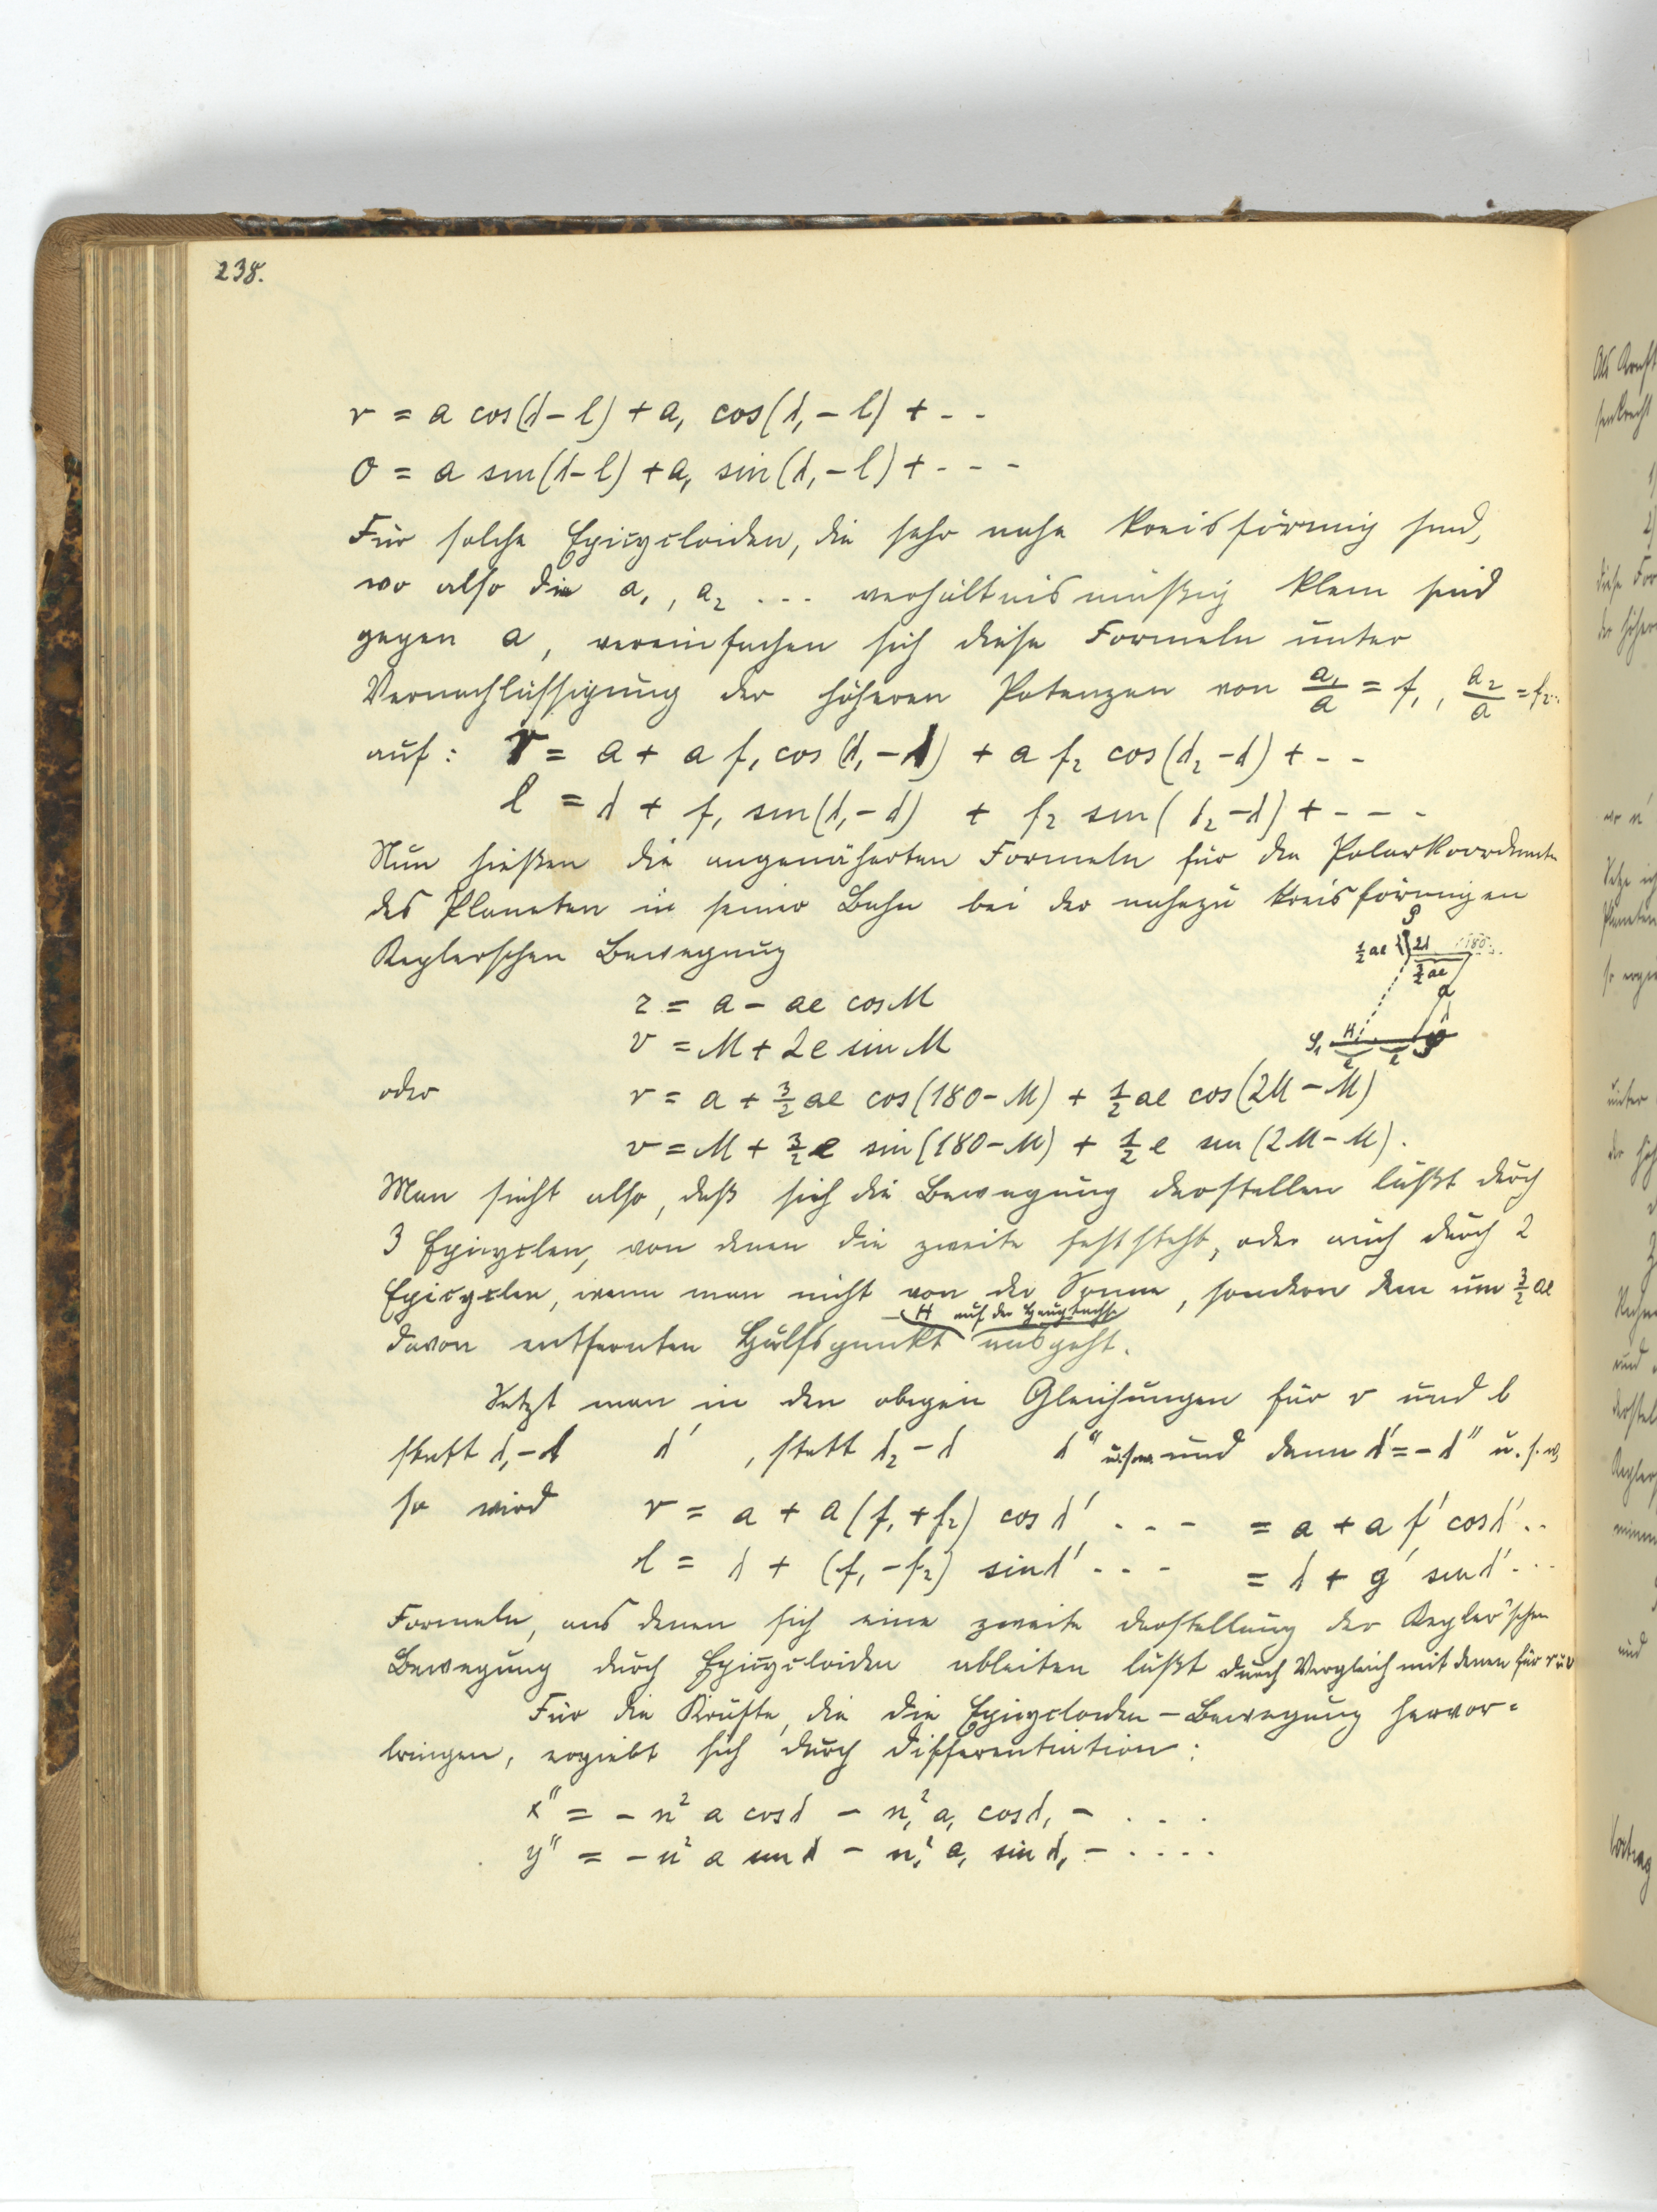 238.
r = a cos(λ-l) + a₁ cos(λ₁-l) + - -
0 = a sin(λ-l) + a₁ sin(λ₁-l) + - - -
Für solche Epicycloiden, die sehr nahe kreisförmig sind,
wo also die a₁, a₂ ... verhältnismäßig klein sind
gegen a, vereinfachen sich diese Formeln unter
Vernachlässigung der höheren Potenzen von a₁/a = f₁, a₂/a = f₂..
auf: r = a + a f₁ cos(λ₁-λ) + a f₂ cos(λ₂-λ) + - -
l = λ + f₁ sin(λ₁-λ) + f₂ sin(λ₂-λ) + - - -
Nun hießen die angenäherten Formeln für die Polarkoordinaten
des Planeten in seiner Bahn bei der nahezu kreisförmigen
Keplerschen Bewegung
P
½ae 2λ 180
3/2 ae
a
S₁ H
e e
r = a - ae cos M
v = M + 2e sin M
oder r = a + 3/2 ae cos(180-M) + 1/2 ae cos(2M-M)
v = M + 3/2 e sin(180-M) + 1/2 e sin(2M-M).
Man sieht also, daß sich die Bewegung darstellen läßt durch
3 Epicyclen, von denen die zweite feststeht, oder auch durch 2
Epicyclen, wenn man nicht von der Sonne, sondern dem um 3/2 ae
H auf der Hauptachse
davon entfernten Hülfspunkt ausgeht.
Setzt man in den obigen Gleichungen für r und l
statt λ₁-λ λ', statt λ₂-λ λ'' u.s.w. und dann λ' = -λ'' u.s.w,
so wird r = a + a(f₁+f₂) cos λ' . . - = a + a f' cos λ' ..
l = λ + (f₁-f₂) sin λ' . . - = λ + g' sin λ' ...
Formeln, aus denen sich eine zweite Darstellung der Kepler'schen
Bewegung durch Epicycloiden ableiten läßt durch Vergleich mit denen für r u v
Für die Kräfte, die die Epicycloiden-Bewegung hervor=
bringen, ergiebt sich durch Differentiation:
x'' = - n² a cos λ - n₁² a₁ cos λ₁ - . . .
y'' = - n² a sin λ - n₁² a₁ sin λ₁ - . . . .